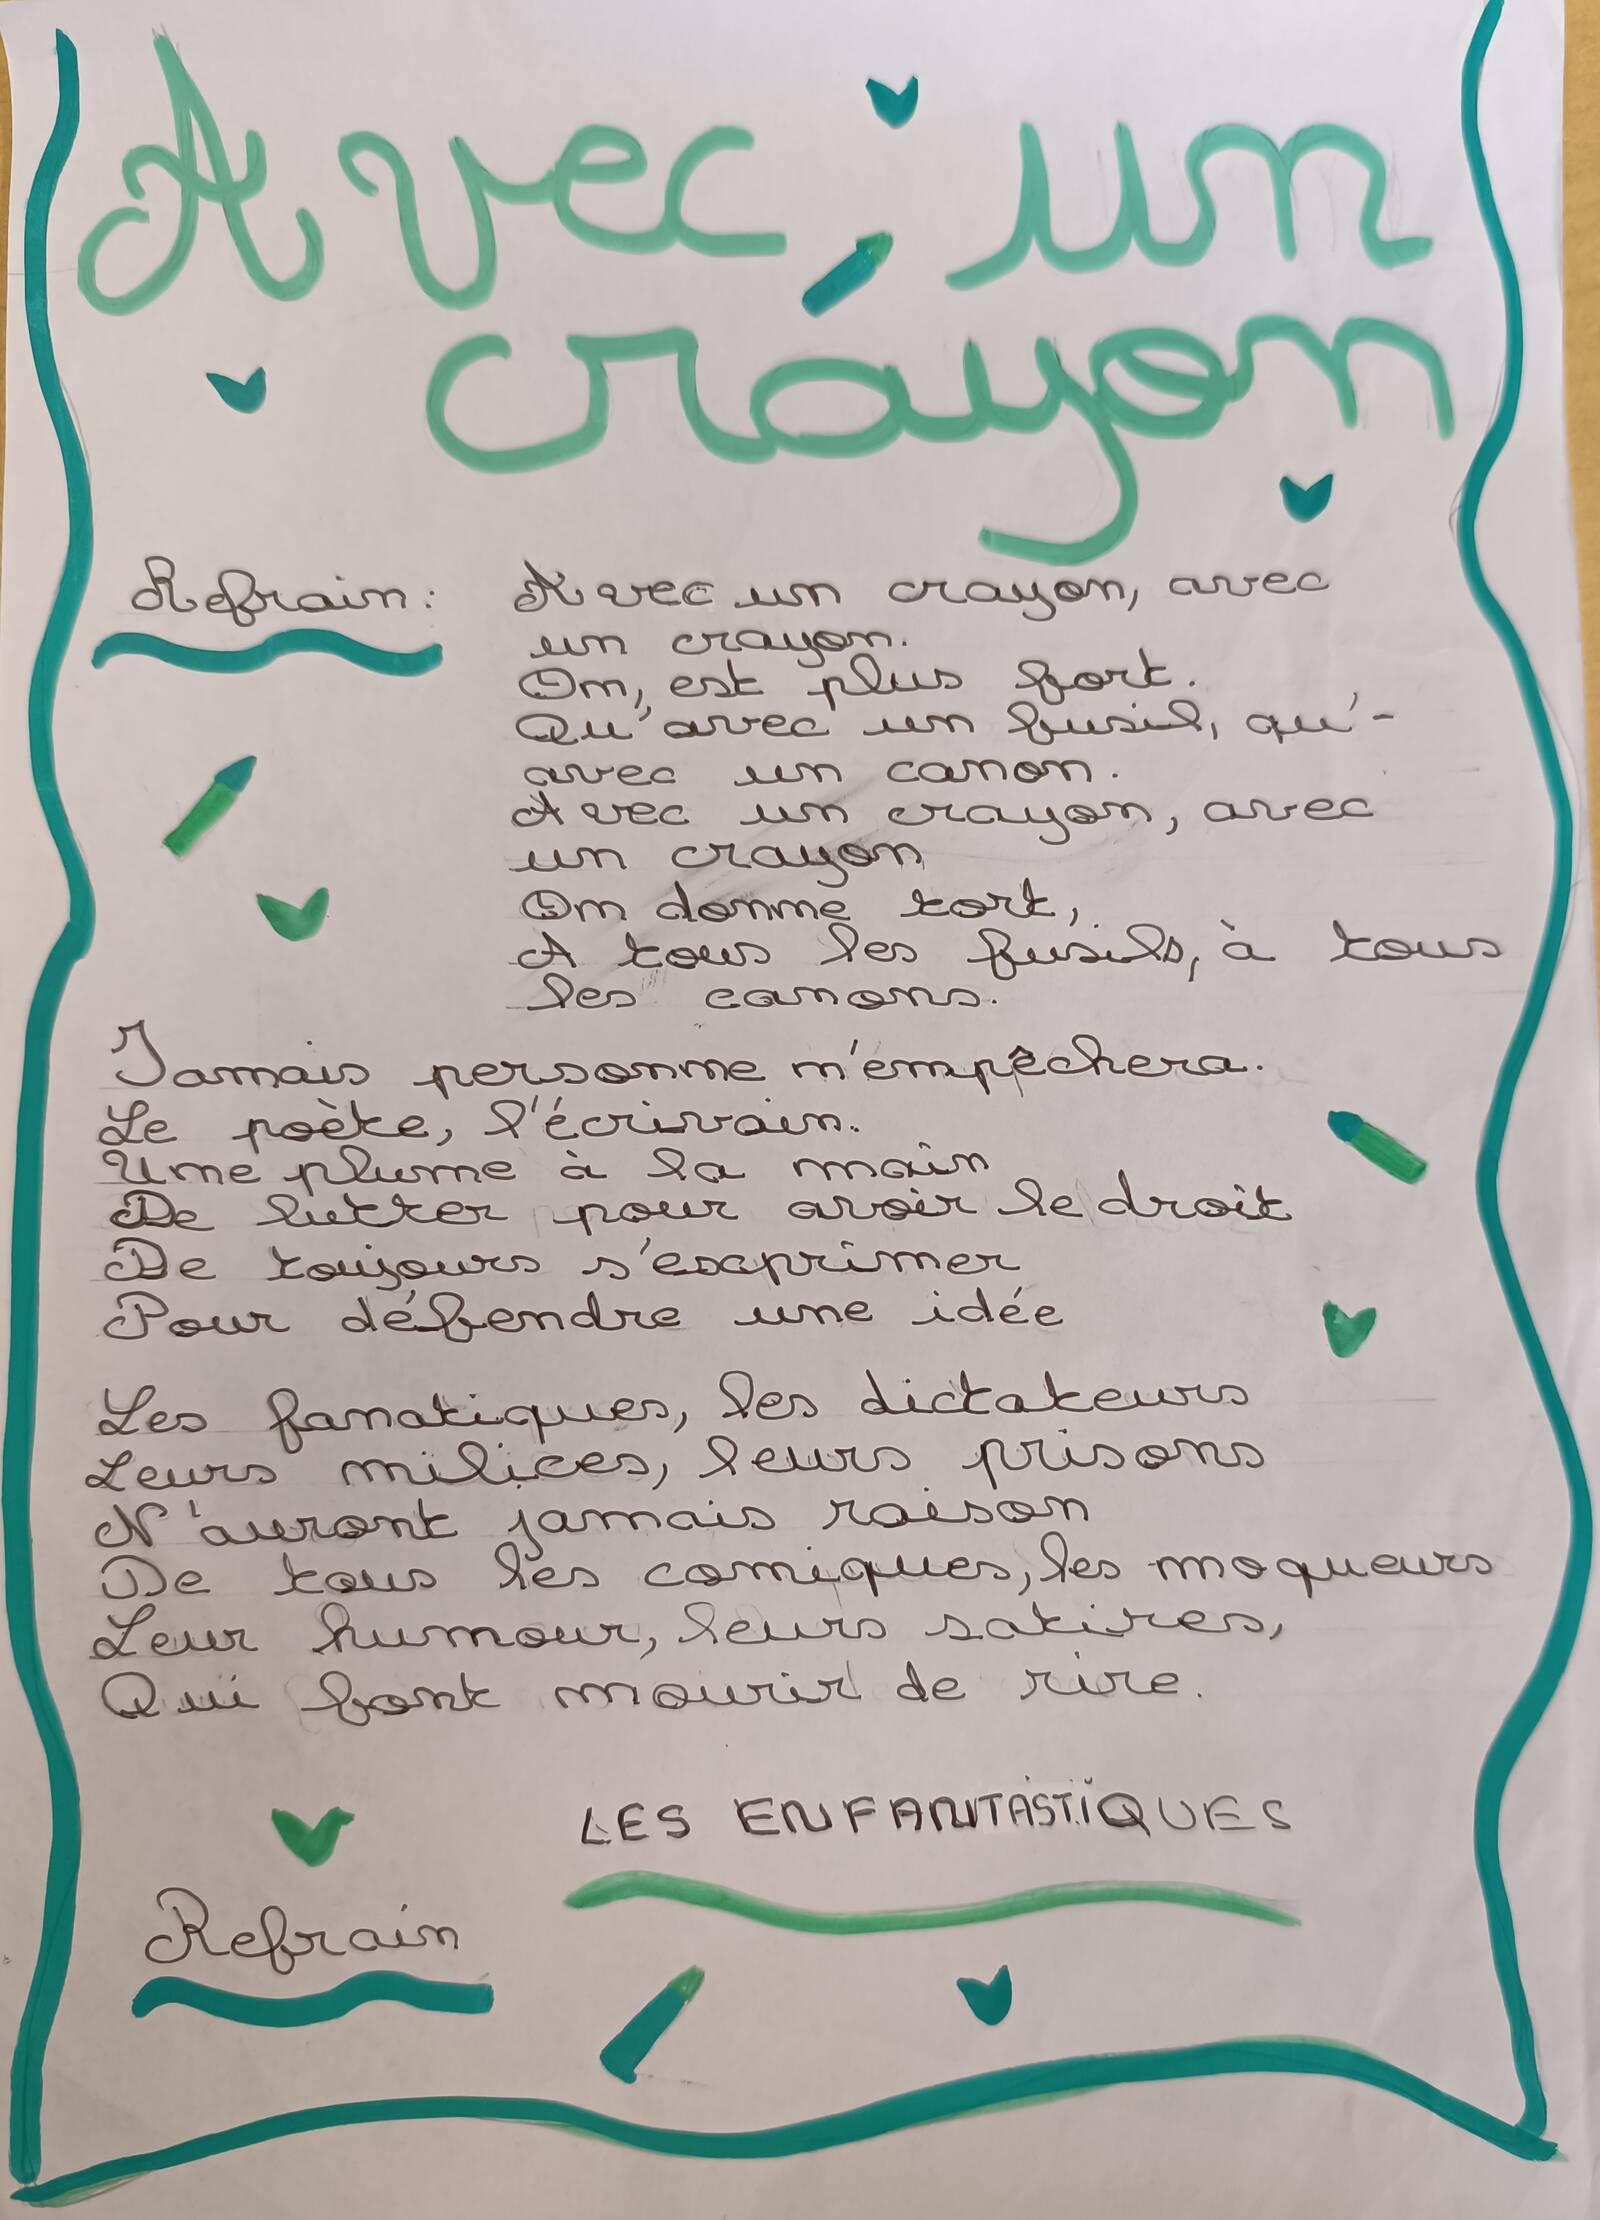 Avec un
crayon
Refrain: Avec un crayon, avec
un crayon.
On, est plus fort.
Qu'avec un fusil, qu'-
avec un canon.
Avec un crayon, avec
un crayon
On donne tort,
A tous les fusils, à tous
les canons.
Jamais personne n'empêchera.
Le poète, l'écrivain.
Une plume à la main
De lutter pour avoir le droit
De toujours s'exprimer
Pour défendre une idée
Les fanatiques, les dictateurs
Leurs milices, leurs prisons
N'auront jamais raison
De tous les comiques, les moqueurs
Leur humour, leurs satires,
Qui font mourir de rire.
LES ENFANTASTIQUES
Refrain